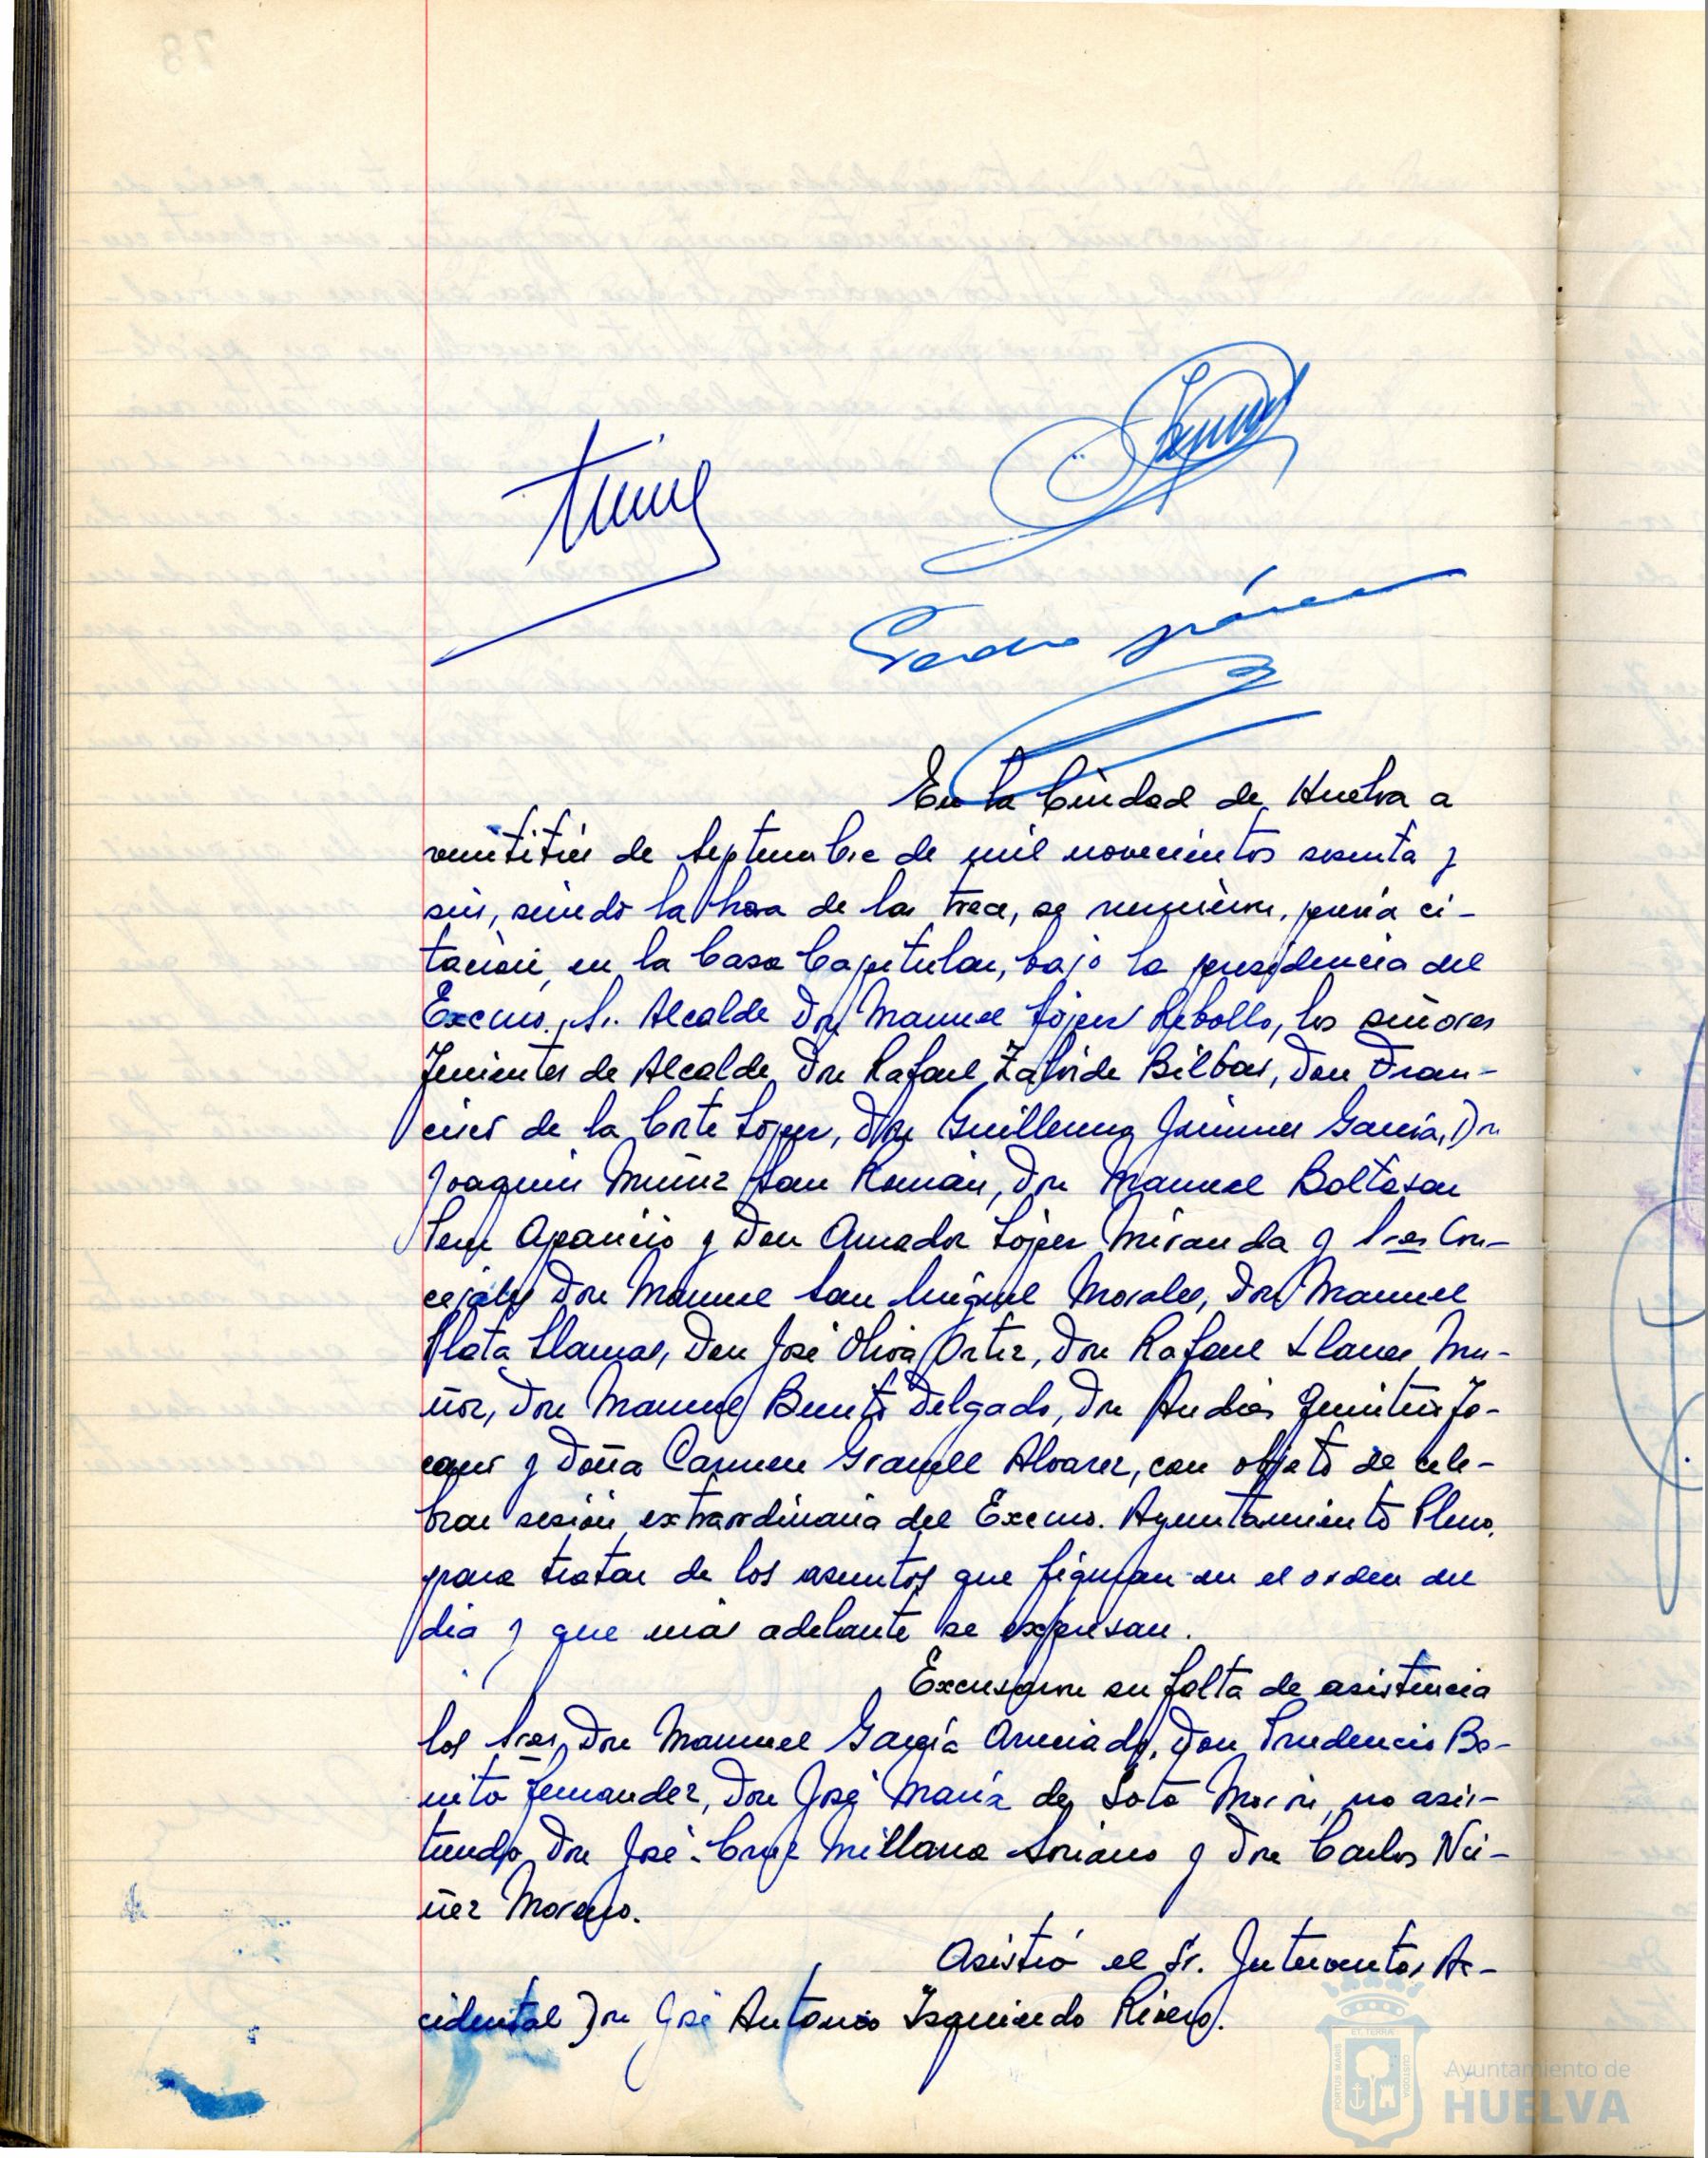 En la Ciudad de Huelva a
veintitrés de Septiembre de mil novecientos sesenta y
seis, siendo la hora de las trece, se reunieron, previa ci-
tación, en la Casa Capitular, bajo la presidencia del
Excmo. Sr. Alcalde Don Manuel López Rebollo, los señores
Tenientes de Alcalde Don Rafael Zalvide Bilbao, Don Fran-
cisco de la Corte López, Don Guillermo Jiménez García, Don
Joaquín Muñiz San Román, Don Manuel Baltasar
Aparicio y Don Amador López Miranda y Sres Con-
cejales Don Manuel San Miguel Morales, Don Manuel
Plata Llamas, Don José Oliva Ortiz, Don Rafael Llanes Mu-
ñoz, Don Manuel Benito Delgado, Don Andrés
y Doña Carmen Granell Alvarez, con objeto de cele-
brar sesión extraordinaria del Excmo. Ayuntamiento Pleno,
para tratar de los asuntos que figuran en el orden del
dia y que más adelante se expresan.
Excusaron su falta de asistencia
los Sres Don Manuel García Don Prudencio Be-
nito Fernandez, Don José María de Soto Morón, no asis-
tiendo Don José-Cruz Millana Soriano y Don Carlos Nú-
ñez Moreno.
Asistió el Sr. Interventor Ac-
cidental Don José Antonio Izquierdo Rivero.
PORTUS MARIS
ET TERRÆ
CUSTODIA
Ayuntamiento de
HUELVA